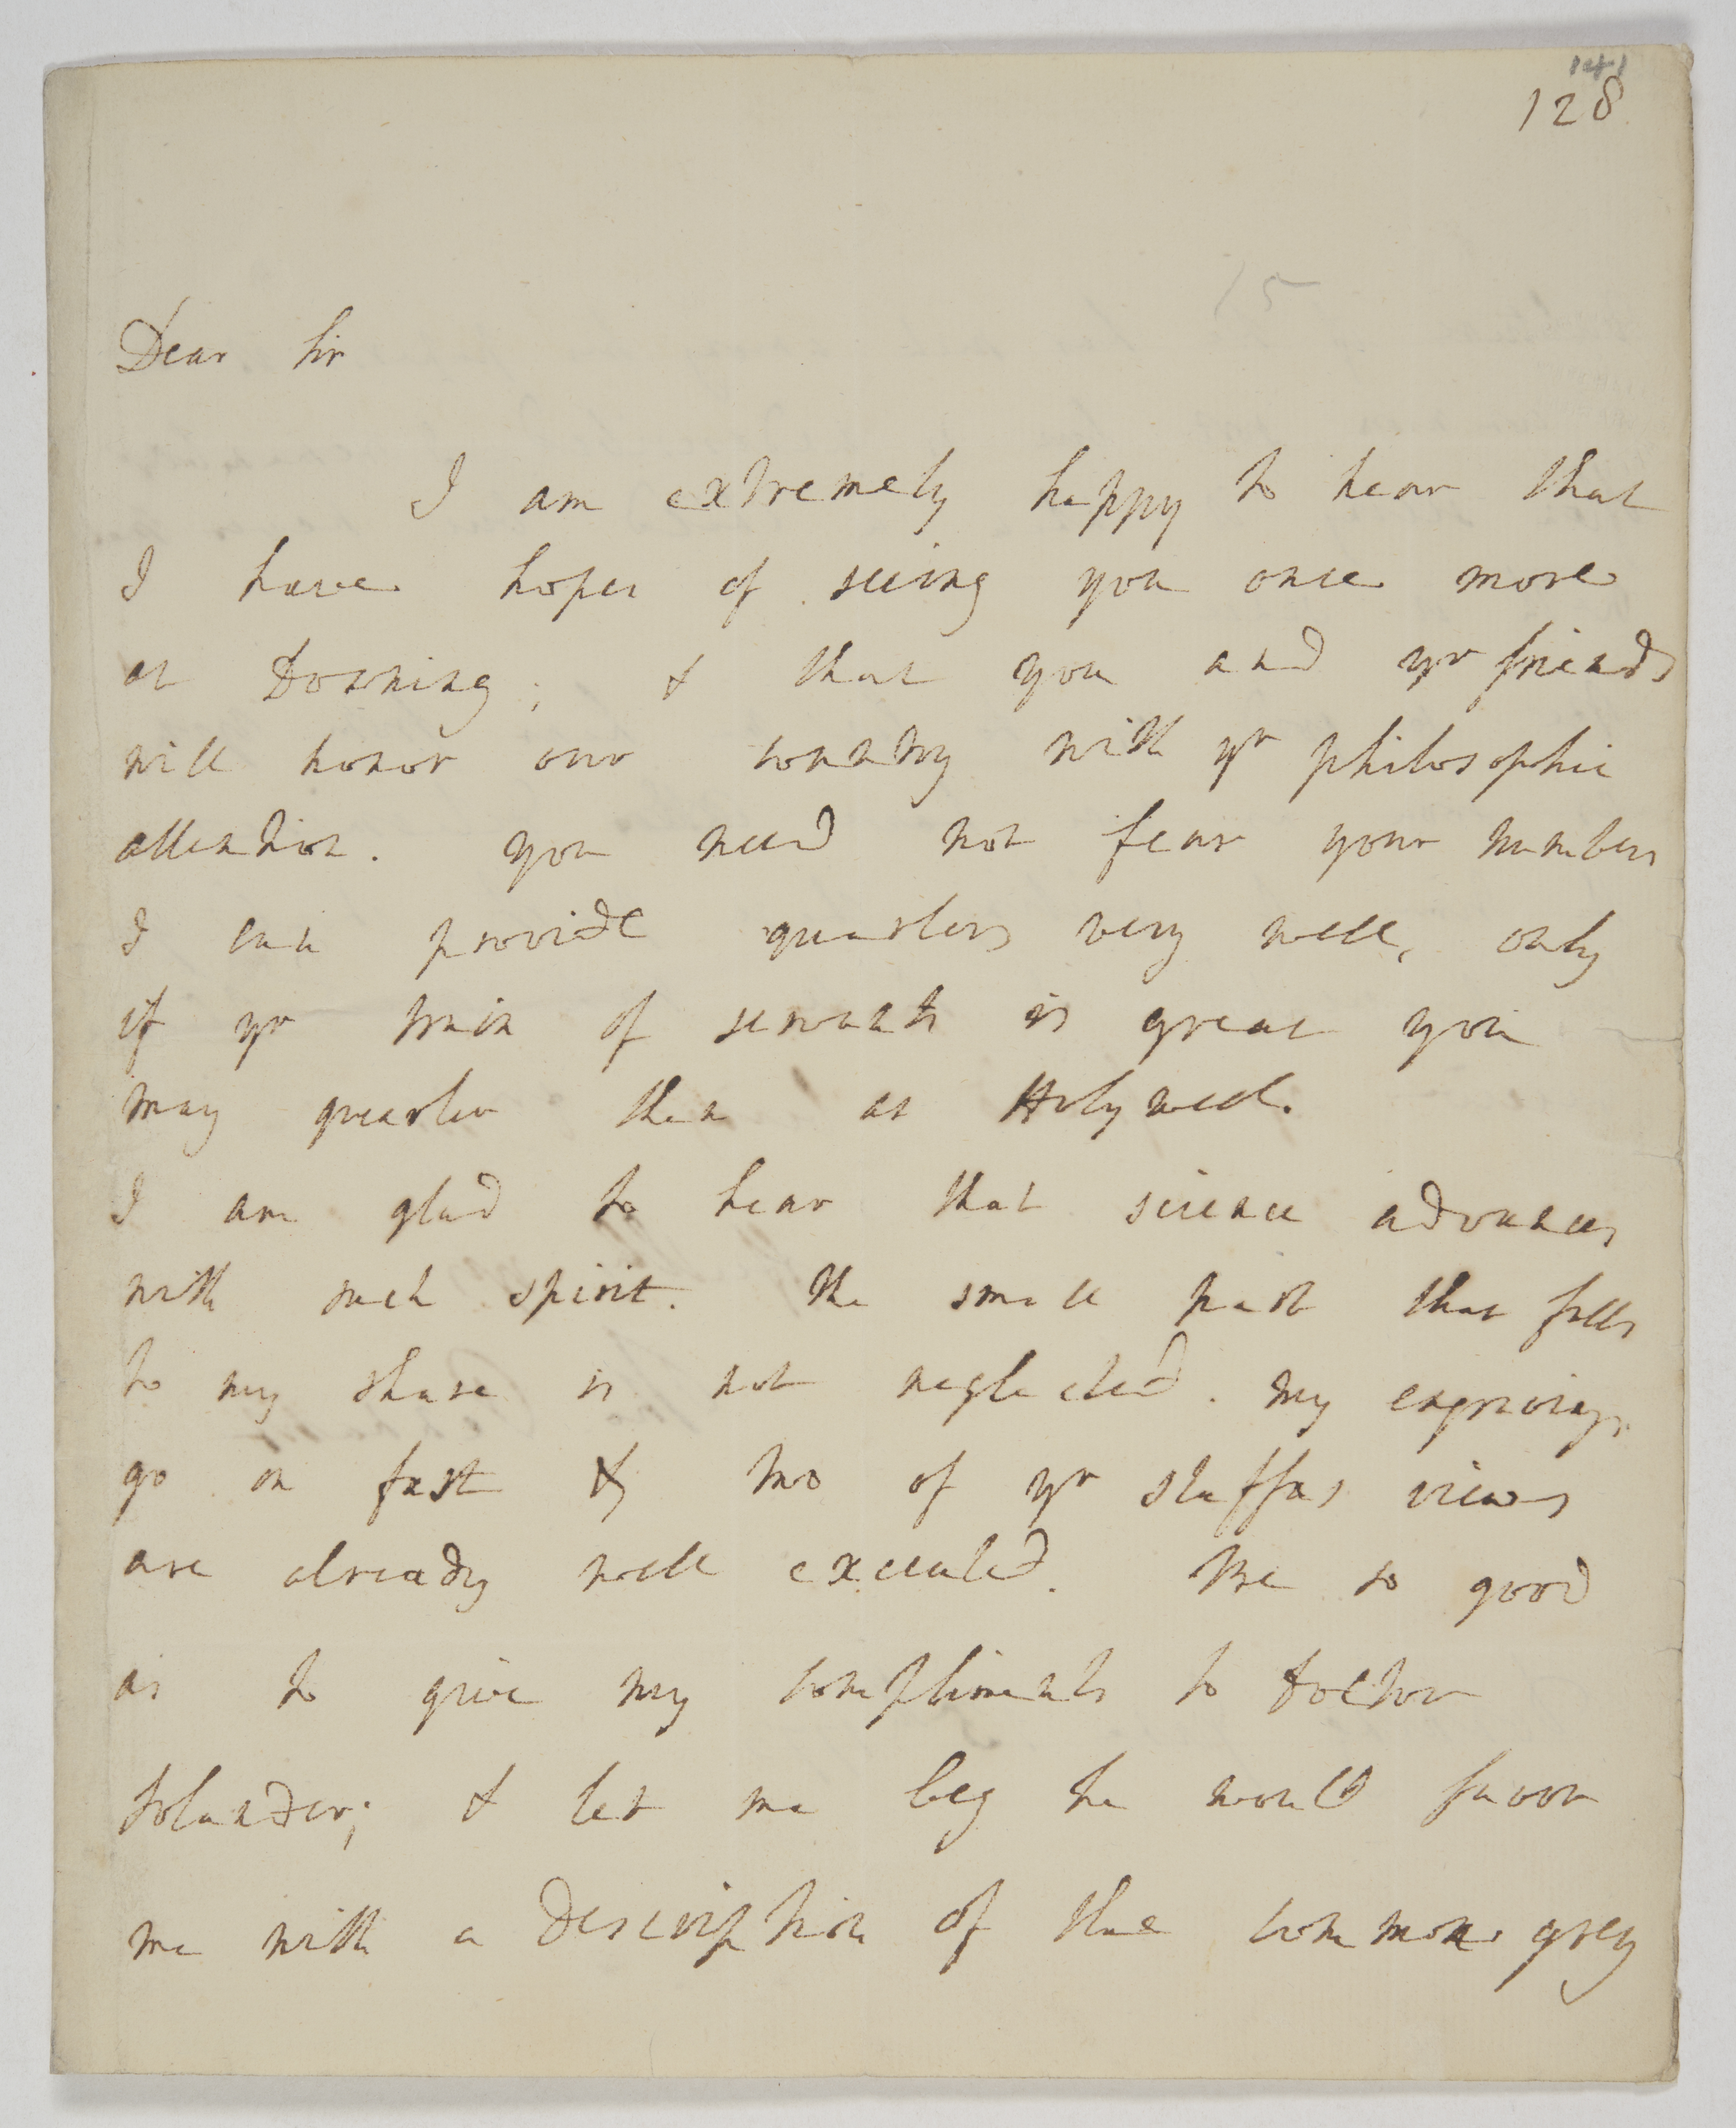 141
128
15
Dear Sir
I am extremely happy to hear that
I have hopes of seeing you once more
at Downing; & that you and yr friends
will honor our country with yr philosophic
attention. you need not fear your numbers
I can provide quarters very well, only
if yr train of servants is great you
may quarter them at Holywell.
I am glad to hear that science advances
with such spirit. the small part that falls
to my share is not neglected. my engravings
go on fast & two of yr staffas views
are already well executed. Be so good
as to give my compliments to doctor
Solander; & let me beg he would favor
me with a description of the common grey